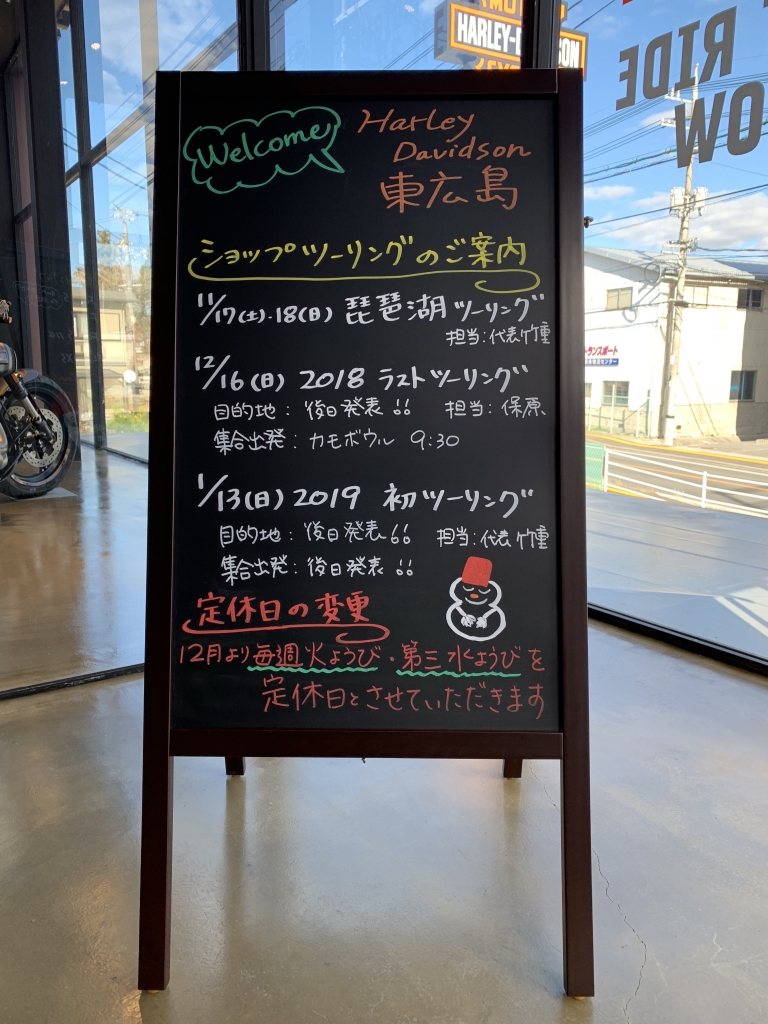 HARLEY-D
SON
RIDE
OW
Welcome
Harley
Davidson
東広島
ショップツーリングのご案内
11/17(土)・18(日) 琵琶湖ツーリング
担当:代表竹重
12/16(日) 2018 ラストツーリング
目的地: 後日発表!! 担当: 保原
集合出発: カモボウル 9:30
1/13(日) 2019 初ツーリング
目的地: 後日発表!! 担当:代表竹重
集合出発: 後日発表!!
定休日の変更
12月より毎週火ようび・第三水ようびを
定休日とさせていただきます